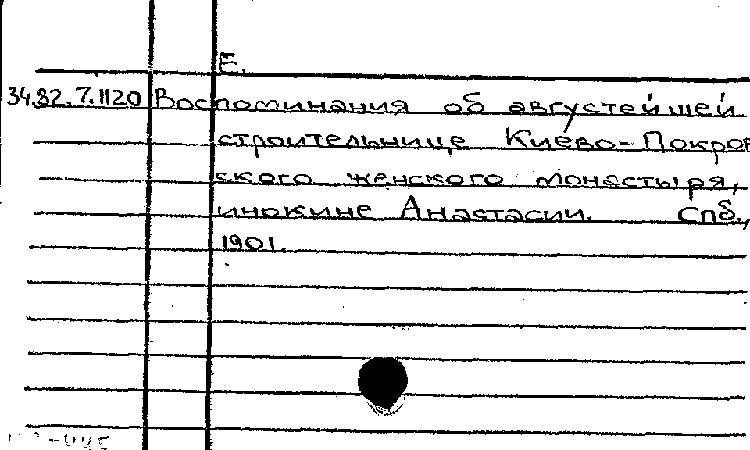 Е.
34.82.7.1120 Воспоминания об августейшей
строительнице Киево-Покров
ского женского монастыря,
инокине Анастасии. Спб.,
1901.